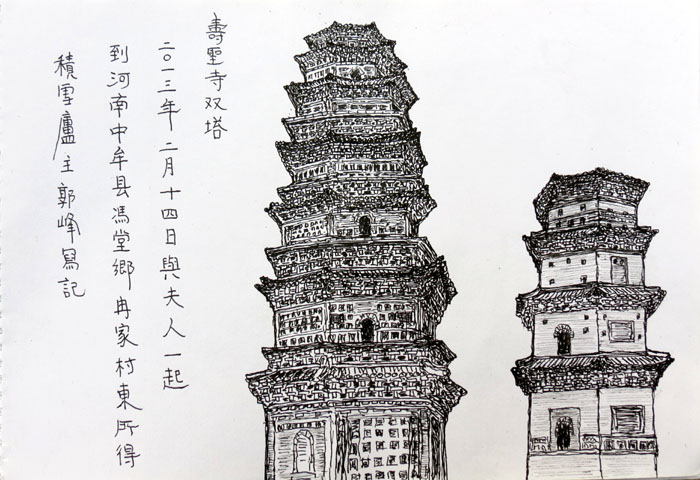 壽聖寺双塔
二〇一三年二月十四日與夫人一起
到河南中牟县馮堂鄉冉家村東所得
積雪廬主郭峰寫記